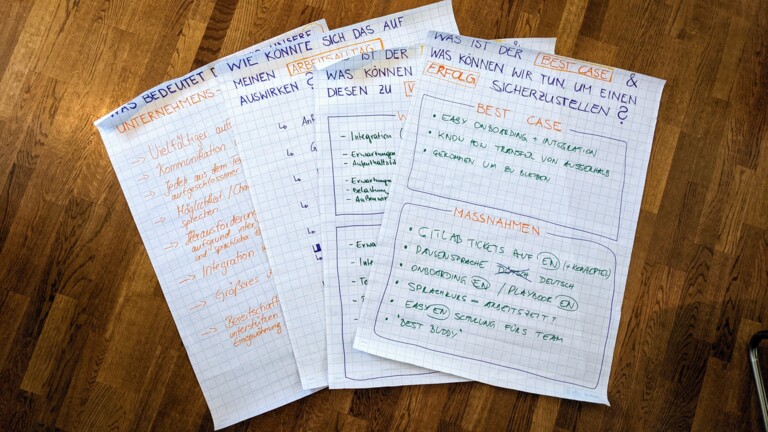 WAS BEDEUTET
UNTERNEHMENS-
→ Vielfältiges
→ Kommunikation
→ Jeder aus dem
aufgeschlossener
→ Möglichkeit
sprechen
→ Herausforderung
aufgrund
und sprachlicher
→ Integration
→ Größeres
→ Bereitschaft
unterstützen
Eingewöhnung
WIE KÖNNTE SICH DAS AUF
MEINEN ARBEITSALLTAG
AUSWIRKEN?
WAS IST DER
WAS KÖNNEN
DIESEN ZU
- Integration
- Erwartungen
- Aufenthaltst
- Erwartungen
- Belastung
WAS IST DER BEST CASE &
WAS KÖNNEN WIR TUN, UM EINEN
ERFOLG SICHERZUSTELLEN?
BEST CASE
• EASY ONBOARDING + INTEGRATION
• KNOW HOW TRANSFER VON AUSSERHALB
• GEKOMMEN UM ZU BLEIBEN
MASSNAHMEN
• GITLAB TICKETS AUF EN (+ KONZEPTE)
• PAUSENSPRACHE DEUTSCH
• ONBOARDING EN / PLAYBOOK EN
• SPRACHKURS = ARBEITSZEIT?
• EASY EN SCHULUNG FÜRS TEAM
• "BEST BUDDY"